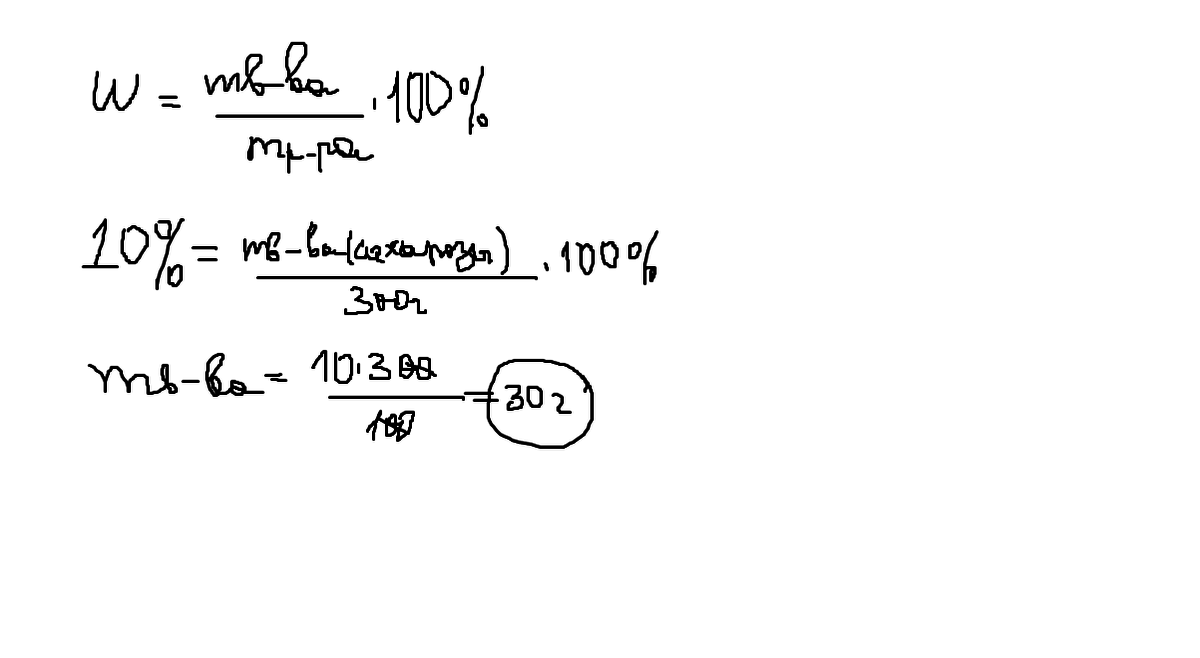 W = mв-ва / mр-ра · 100%
10% = mв-ва(сахарозы) / 300г · 100%
mв-ва = 10·300 / 100 = 30г